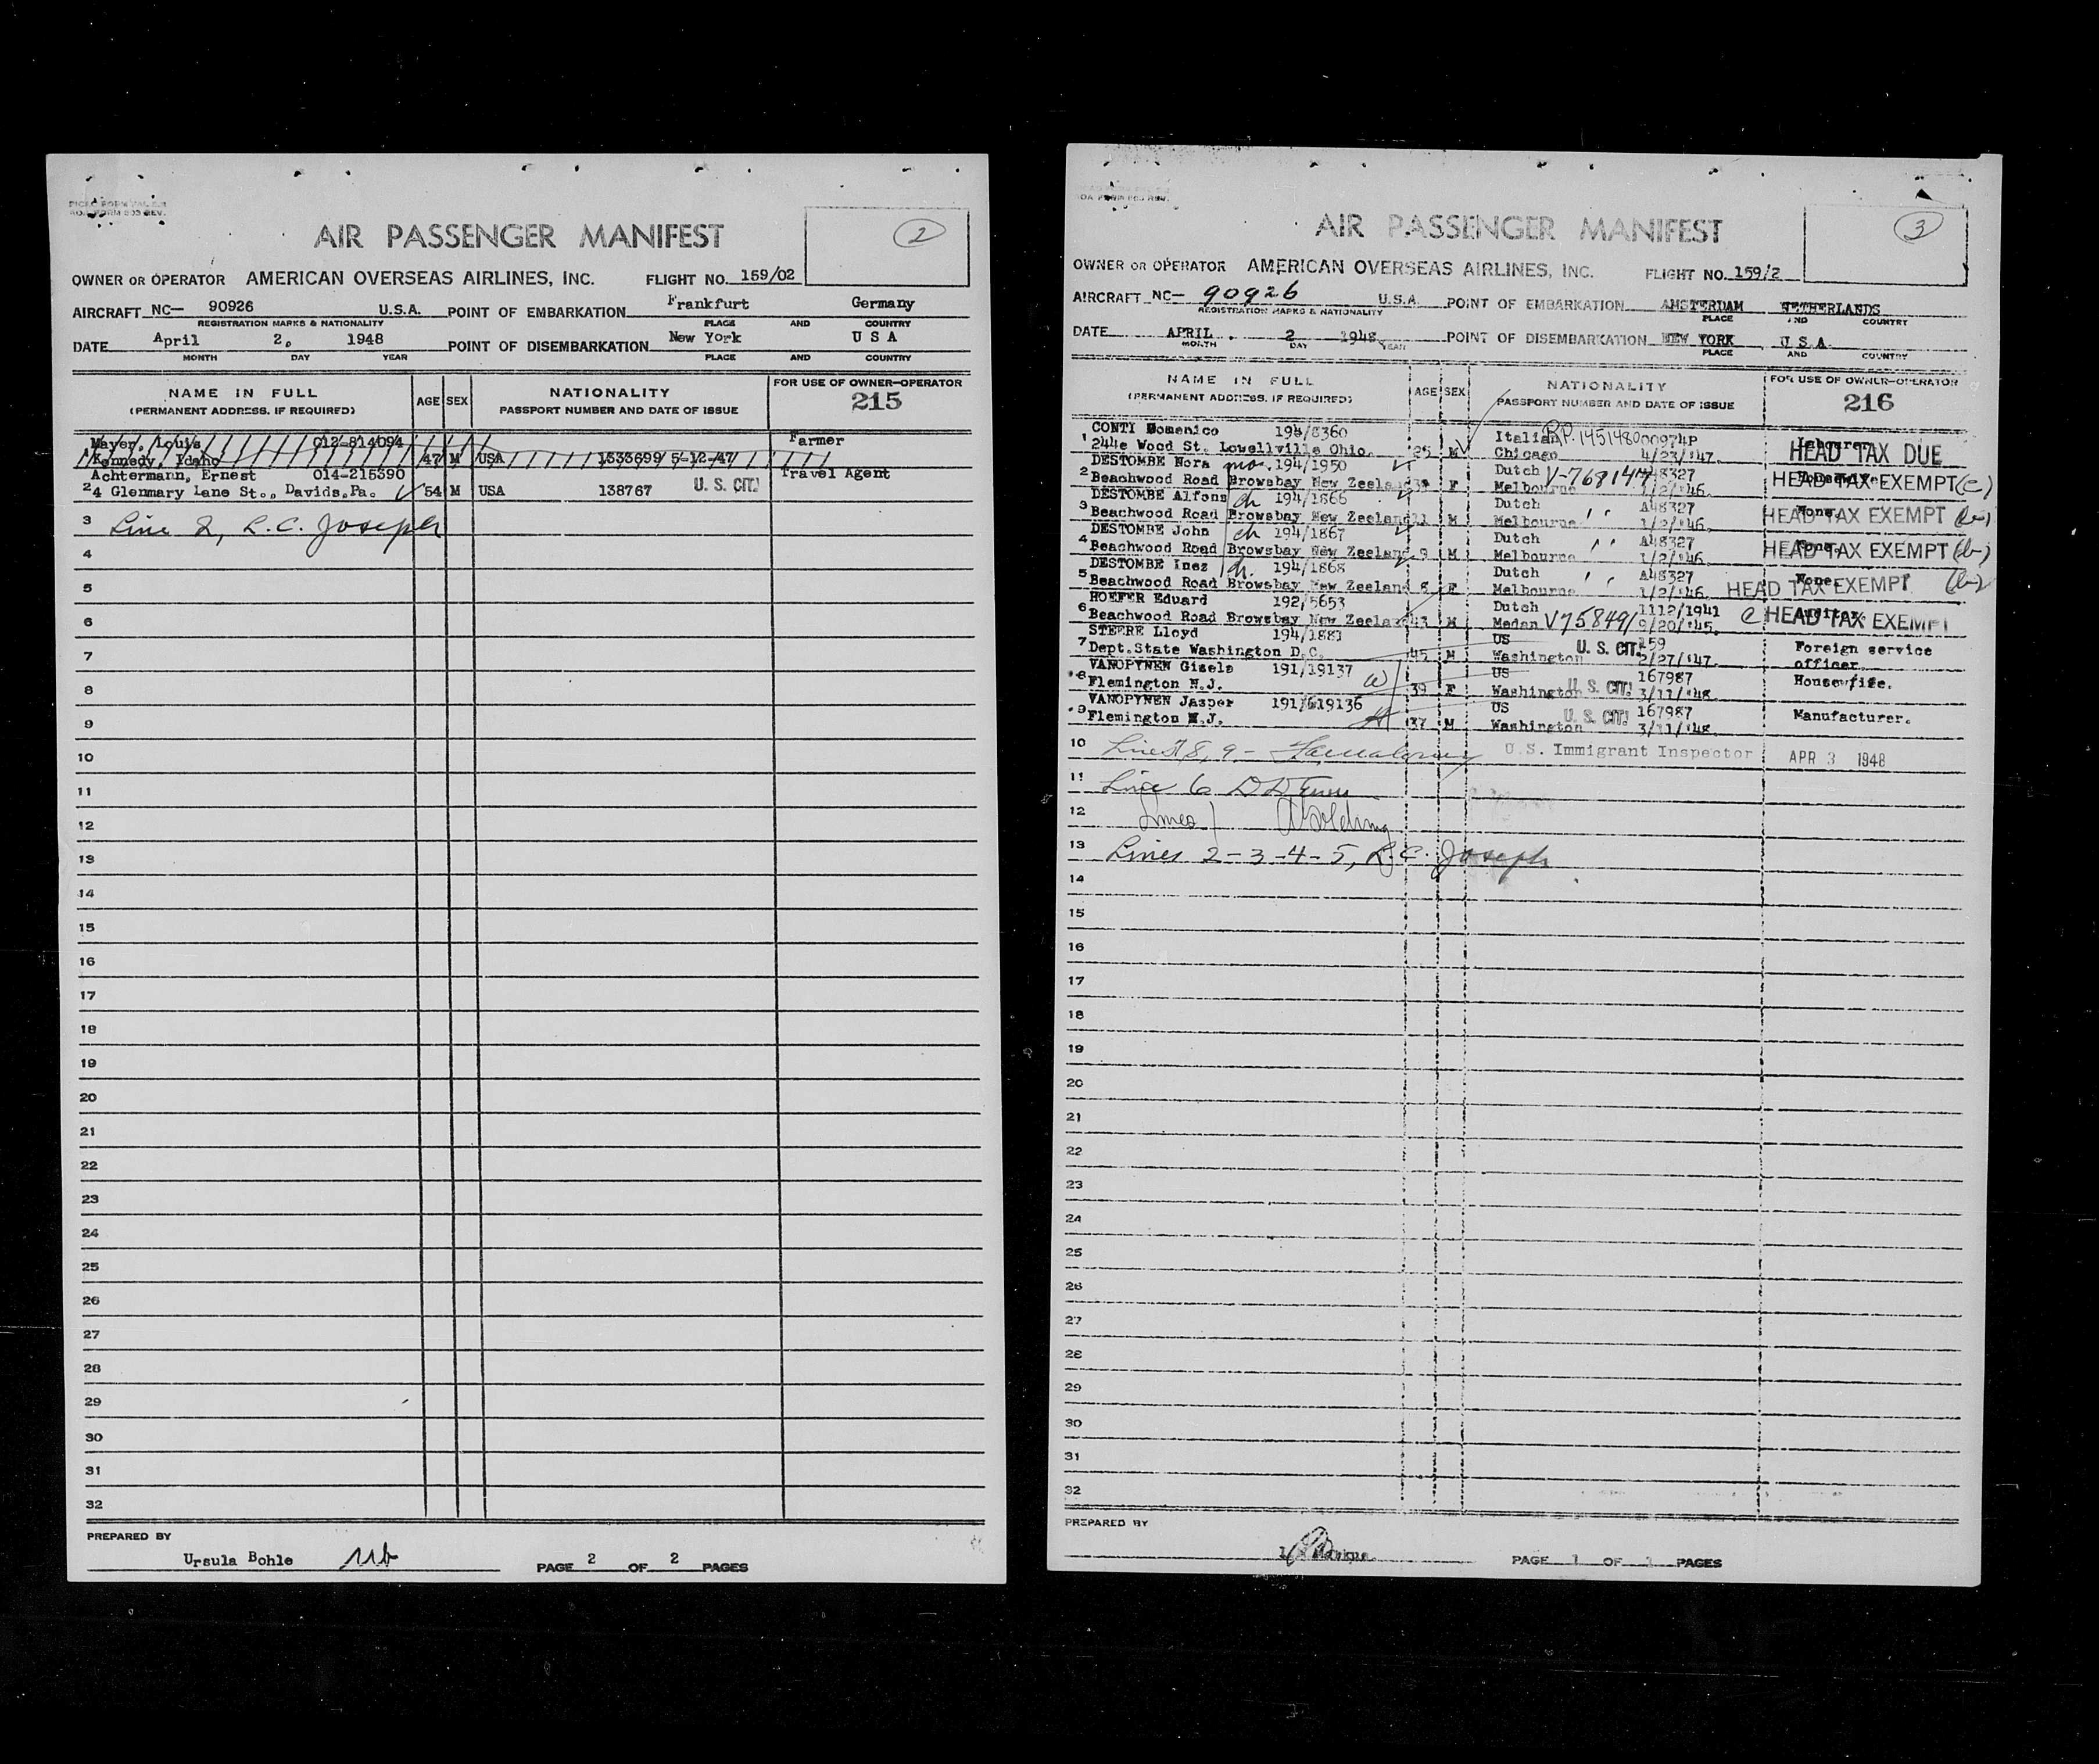 AIR PASSENGER MANIFEST
2
OWNER OR OPERATOR AMERICAN OVERSEAS AIRLINES, INC. FLIGHT NO. 159/02
AIRCRAFT NC— 90926 U.S.A. POINT OF EMBARKATION Frankfurt Germany
REGISTRATION MARKS & NATIONALITY PLACE AND COUNTRY
DATE April 2, 1948 POINT OF DISEMBARKATION New York U S A
MONTH DAY YEAR PLACE AND COUNTRY
NAME IN FULL AGE SEX NATIONALITY FOR USE OF OWNER—OPERATOR
(PERMANENT ADDRESS, IF REQUIRED) PASSPORT NUMBER AND DATE OF ISSUE 215
Mayer, Louis 012-814094 Farmer
1 Kennedy, Idaho 47 M USA 1333699 5-12-47
Achtermann, Ernest 014-215390 Travel Agent
2 4 Glenmary Lane St., Davids.Pa. 54 M USA 138767 U. S. CIT.
3 Line 2, R.C. Joseph
4
5
6
7
8
9
10
11
12
13
14
15
16
17
18
19
20
21
22
23
24
25
26
27
28
29
30
31
32
PREPARED BY
Ursula Bohle ub PAGE 2 OF 2 PAGES
AIR PASSENGER MANIFEST
3
OWNER OR OPERATOR AMERICAN OVERSEAS AIRLINES, INC. FLIGHT NO. 159/2
AIRCRAFT NC— 90926 U.S.A. POINT OF EMBARKATION AMSTERDAM NETHERLANDS
REGISTRATION MARKS & NATIONALITY PLACE AND COUNTRY
DATE APRIL 2 1948 POINT OF DISEMBARKATION NEW YORK U S A
MONTH DAY YEAR PLACE AND COUNTRY
NAME IN FULL AGE SEX NATIONALITY FOR USE OF OWNER—OPERATOR
(PERMANENT ADDRESS, IF REQUIRED) PASSPORT NUMBER AND DATE OF ISSUE 216
CONTI Domenico 194/8360 Italian R.P. 1451480000974P Labourer
1 244e Wood St. Lowellville Ohio. 25 M Chicago 4/23/'47. HEAD TAX DUE
DESTOMBE Nora mo. 194/1950 Dutch V-768147 A48327
2 Beachwood Road Browsbay New Zeeland F Melbourne 1/2/'46. HEAD TAX EXEMPT (c)
DESTOMBE Alfons ch 194/1866 Dutch " A48327 None.
3 Beachwood Road Browsbay New Zeeland 11 M Melbourne 1/2/'46. HEAD TAX EXEMPT (b)
DESTOMBE John ch 194/1867 Dutch " A48327 None.
4 Beachwood Road Browsbay New Zeeland 9 M Melbourne 1/2/'46. HEAD TAX EXEMPT (b)
DESTOMBE Inez ch. 194/1868 Dutch " A48327 None.
5 Beachwood Road Browsbay New Zeeland 8 F Melbourne 1/2/'46. HEAD TAX EXEMPT (b)
HOEFER Eduard 192/5653 Dutch 1112/1941
6 Beachwood Road Browsbay New Zeeland 43 M Medan V758491 9/20/'45. C HEAD TAX EXEMPT
STEERE Lloyd 194/1881 US U. S. CIT. 159 Foreign service
7 Dept.State Washington D.C. 45 M Washington 2/27/'47. officer.
VANOPYNEN Gisela 191/19137 W US 167987 Housewife.
8 Flemington N.J. 39 F Washington U. S. CIT. 3/11/'48.
VANOPYNEN Jasper 191/19136 H US 167987 Manufacturer.
9 Flemington N.J. 37 M Washington U. S. CIT. 3/11/'48.
10 Lines 7, 8, 9 - U.S. Immigrant Inspector APR 3 1948
11 Line 6
12 Lines 1 Golding
13 Lines 2-3-4-5, R.C. Joseph
14
15
16
17
18
19
20
21
22
23
24
25
26
27
28
29
30
31
32
PREPARED BY
PAGE 1 OF PAGES